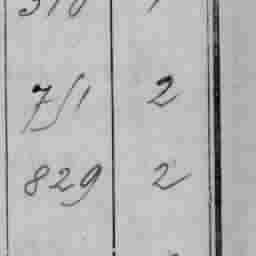 310 1
751 2
829 2